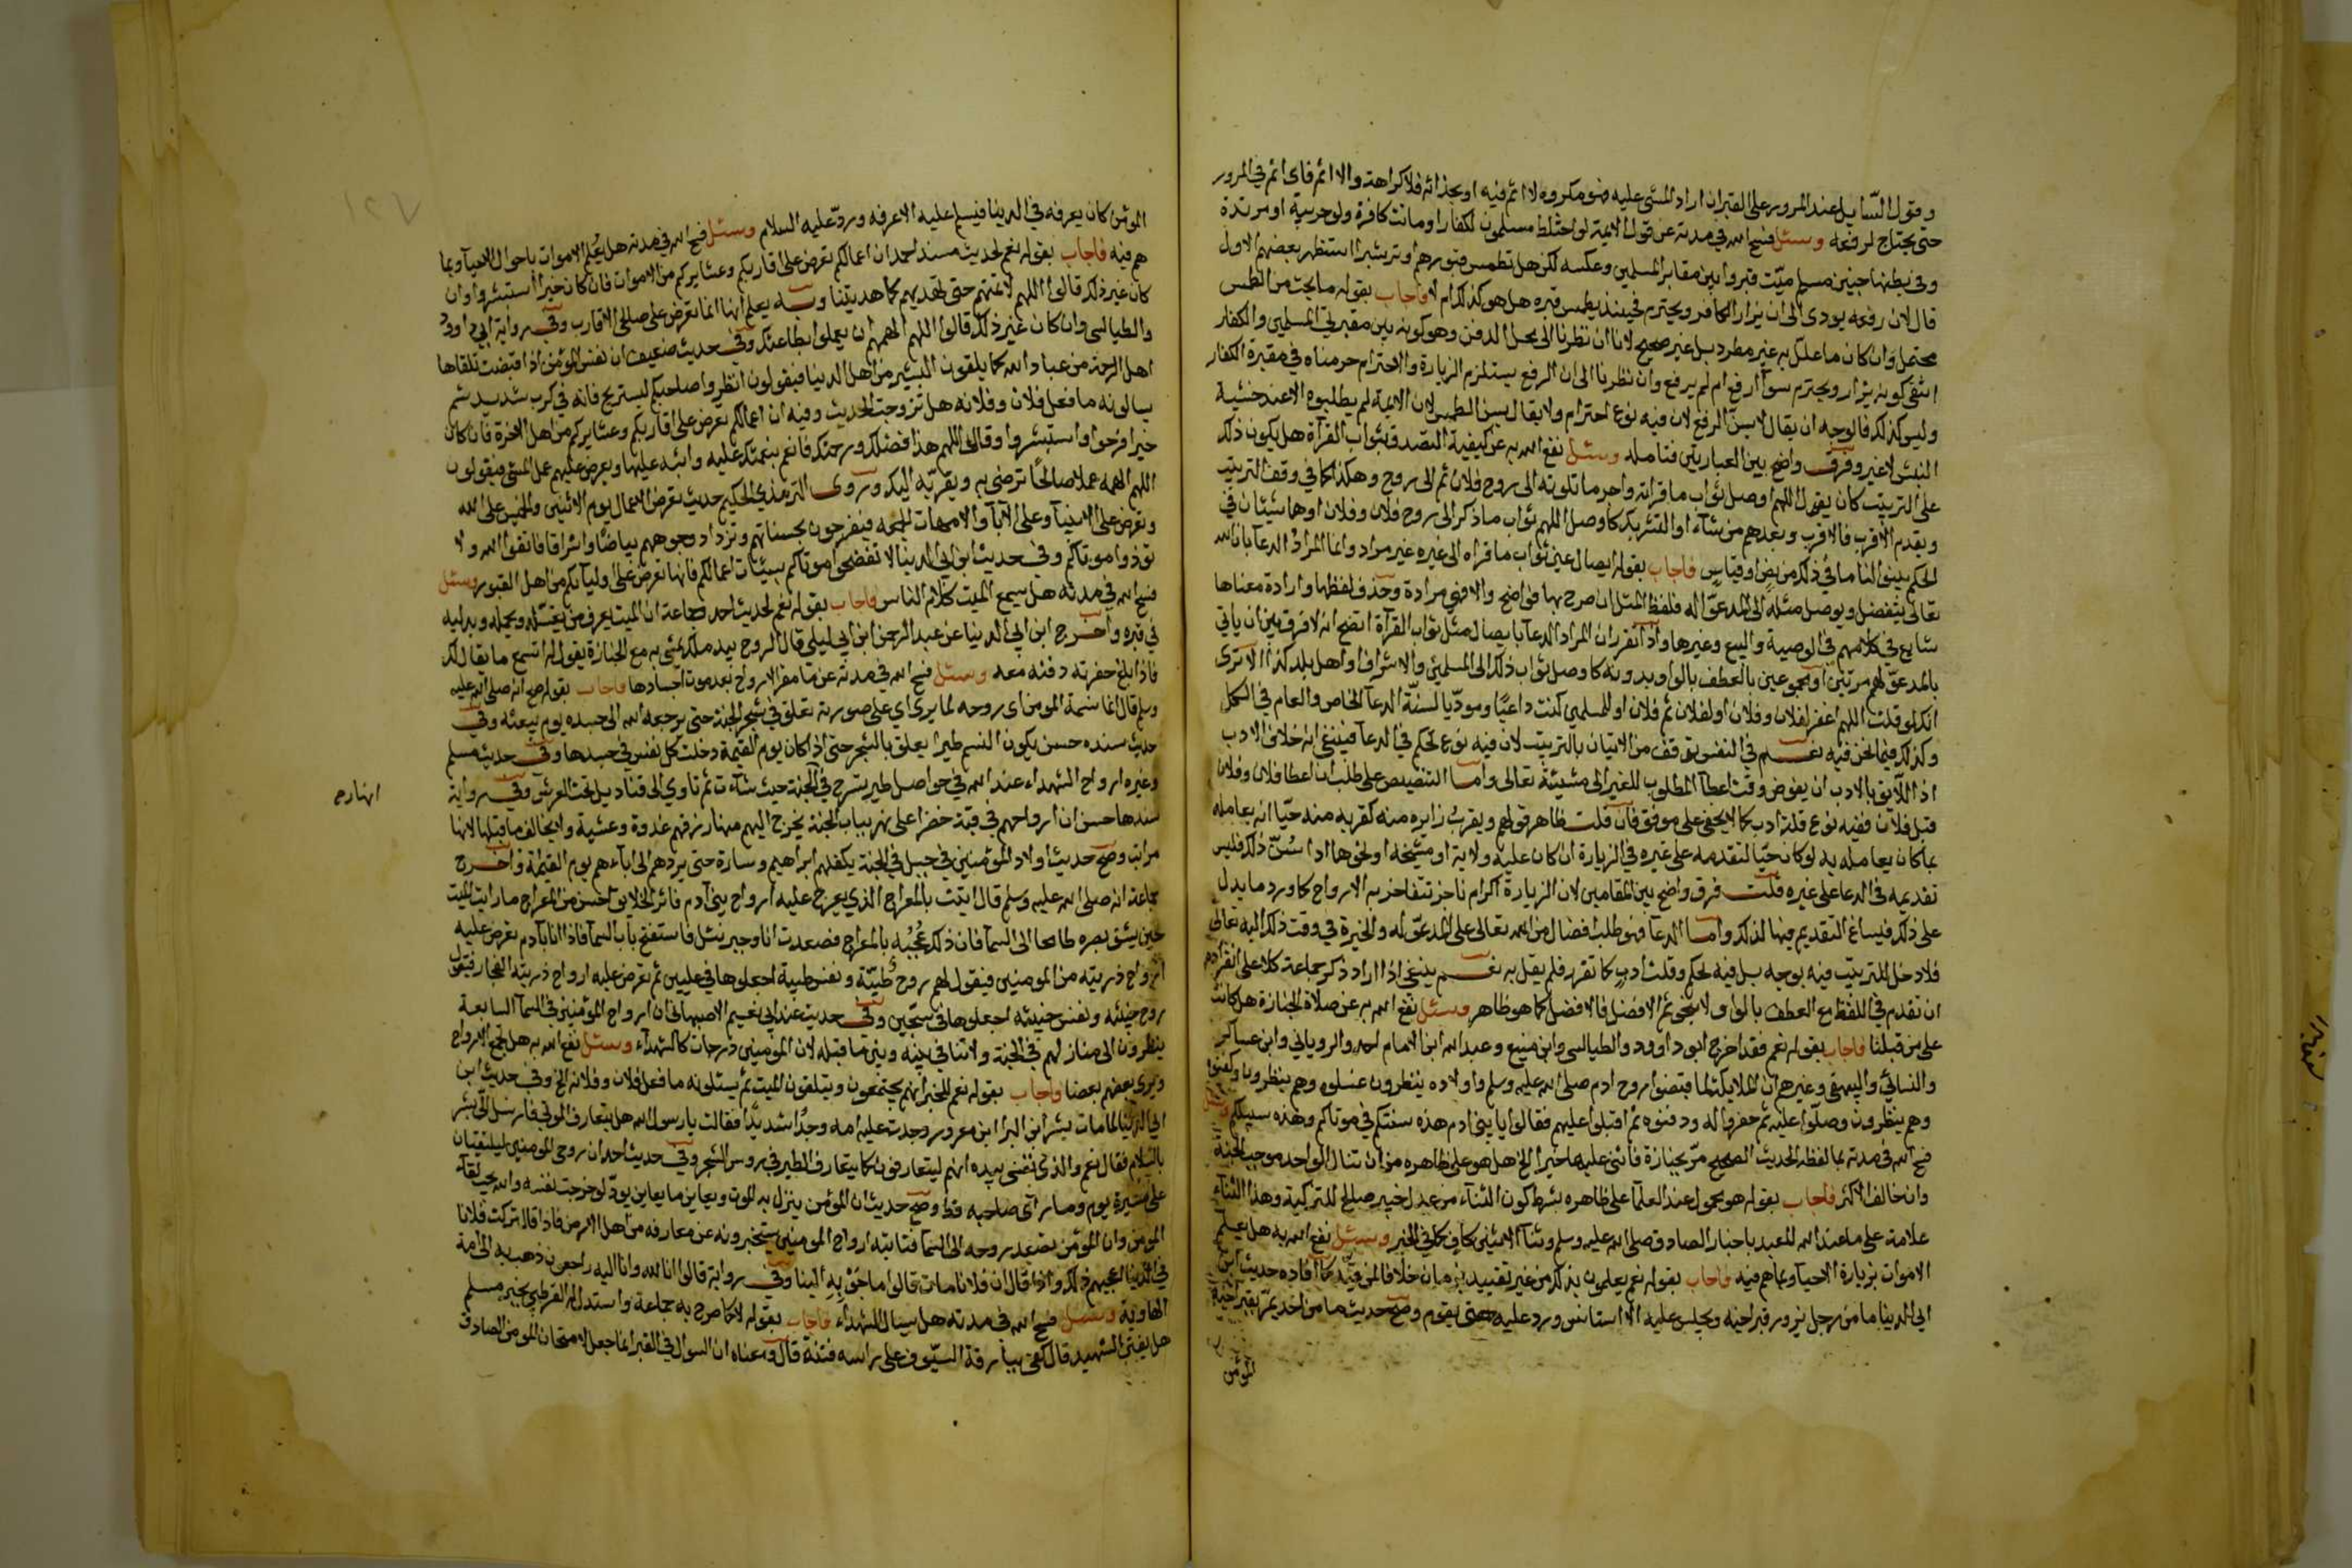 وقول السايل عند المرور على القبر ان اراد المشي عليه فهو مكروه لا اثم فيه او بحذائه فلا كراهة والا اثم فاى اثم في المرور
حتى يحتاج لرفعه وسئل فسح الله في مدته عن قول الايمة لو اختلط مسلمون لكفار او ماتت كافرة ولو حربية او مرتدة
وفي بطنها جنين مسلم ميت قبروا بين مقابر المسلمين وعكسه لكن هل تطمس قبورهم او ترشر استظهر بعضهم الاول
قال لان رفعه يودى الى ان يزار الكافر ويحترم فحينئذ يطمس قبره هل هو كذلك ام لا فاجاب بقوله ما بحث من الطمس
محتمل وان كان ما علل به غير مطرد بل غير صحيح لانا ان نظرنا الى محل الدفن وهو كونه بين مقبرتي المسلمين والكفار
انتفى كونه يزار ويحترم سوا ارفع ام لم يرفع وان نظرنا الى ان الرفع يستلزم الزيارة والاحترام حرمناه في مقبرة الكفار
وليس كذلك فالوجه ان يقال لا يسن الرفع لان فيه نوع احترام ولا يقال يسن الطمس لان الايمة لم يطلبوه الا عند خشية
النبش لا غير وفرق واضح بين العبارتين فتامله وسئل نفع الله به عن كيفية التصدق بثواب القرآة هل يكون ذلك
على الترتيب كان يقول اللهم اوصل ثواب ما قراته واجر ما تلوته الى روح فلان ثم الى روح وهكذا كما في وقف الترتيب
ويقدم الاقرب فالاقرب وبعدهم من شآء او التشريك كاوصل اللهم ثواب ما ذكر الى روح فلان وفلان او هما شيئان في
الحكم بينوا لنا ما في ذلك من نص او قياس فاجاب بقوله ايصال عين ثواب ما قراه الى غيره غير مراد وانما المراد الدعا بان الله
تعالى يتفضل ويوصل مثله الى المدعو له فلفظ المثل ان صرح بها فواضح والا فهي مرادة وحذف لفظها وارادة معناها
شايع في كلامهم في الوصية والبيع وغيرها واذا تقرر ان المراد الدعا بايصال مثل ثواب القرآة اتضح انه لا فرق بين ان ياتي
بالمدعو لهم مرتين او مجموعين بالعطف بالواو بدونه كاوصل ثواب ذلك الى المسلمين والاشراف او اهل بلد كذا الا ترى
انك لو قلت اللهم اغفر لفلان وفلان او لفلان ثم فلان او للمسلمين كنت داعيا وموديا لسنة الدعا الخاص والعام في الكل
وكذلك فيما نحن فيه نعم في النفس توقف من الاتيان بالترتيب لان فيه نوع تحكم في الدعا فينبغي انه خلاف الادب
اذ اللايق بالادب ان يفوض وقت اعطآ المطلوب للغير الى مشيئة تعالى واما التنصيص على طلب ان اعطا فلان وفلان
قبل فلان ففيه نوع قلة ادب كما لا يخفى على موفق فان قلت ظاهر قولهم ويقرب زايره منه كقربه منه حيا انه يعامله
بما كان يعامله به لو كان حيا لتقدمه على غيره في الزيارة ان كان عليه ولاية او مشيخة او نحوها اذا سن ذلك فليس
تقديمه في الدعا على غيره قلت فرق واضح بين المقامين لان الزيارة اكرام ناجز تتفاخر به الارواح كما ورد ما يدل
على ذلك فيساغ التقديم فيها لذلك واما الدعا فهو طلب افضال من الله تعالى على المدعو له والخيرة في وقت ذلك اليه تعالى
فلا دخل للترتيب فيه بوجه بل فيه تحكم وقلت ادب كما تقرر فلم يقل به نعم ينبغي اذا اراد ذكر جماعة كلا على انفراده
ان يقدم في اللفظ مع العطف بالواو لا بنحو ثم الافضل فالافضل كما هو ظاهر وسئل نفع الله به عن صلاة الجنازة هل كانت
على من قبلنا فاجاب بقوله نعم فقد اخرج ابو داوود والطيالسي وابن منيع وعبد الله ابن الامام احمد والروياني وابن عساكر
والنسائي والبيهقي وغيرهم ان الملايكة لما قبضوا روح ادم صلى الله عليه وسلم واولاده ينظرون غسلوه وهم ينظرون وكفنوه
وهم ينظرون وصلوا عليه ثم حفروا له ودفنوه ثم اقبلوا عليهم فقالوا يا بني ادم هذه سنتكم في موتاكم وهذه سبيلكم وسئل
فسح الله في مدته بما لفظه الحديث الصحيح مر بجنازة فاثنى عليها خيرا الخ هل هو على ظاهره من ان تنال الواحد موجب الجنة
وان خالف الاكثر فاجاب بقوله هو محمول عند العلما على ظاهره بشرط كون الثناء من عدل خبير صالح للتزكية وهذا الثناء
علامة على ما عند الله للعبد باخبار الصادق صلى الله عليه وسلم وثنآ الاثنين كاف كما في الخبر وسئل نفع الله به هل يعلم
الاموات بزيارة الاحيآ وبما هم فيه فاجاب بقوله نعم يعلمون بذلك من غير تقييد بزمان خلافا لمن قيد كما افاده حديث ابن
ابي الدنيا ما من رجل يزور قبر اخيه ويجلس عليه الا استانس ورد عليه حتى يقوم وصح حديث ما من احد يمر بقبر اخيه
المؤمن
المؤمن كان يعرفه في الدنيا فيسلم عليه الا عرفه ورد عليه السلام وسئل فسح الله في مدته هل يعلم الاموات باحوال الاحيآ وبما
هم فيه فاجاب بقوله نعم لحديث مسند احمد ان اعمالكم تعرض على اقاربكم وعشايركم من الاموات فان كان خيرا استبشروا وان
كان غير ذلك قالوا اللهم لا تمتهم حتى تهديهم كما هديتنا وبه يعلم انها انما تعرض على صالحي الاقارب وفي رواية ابي داوود
والطيالسي وان كان غير ذلك قالوا اللهم الهمهم ان يعملوا بطاعتك وفي حديث ضعيف ان نفس المؤمن اذا قبضت تلقاها
اهل الرحمة من عباد الله كما يلقون البشير من اهل الدنيا فيقولون انظروا صاحبكم ليستريح فانه في كرب شديد ثم
يسالونه ما فعل فلان وفلانه هل تزوجت الحديث وفيه ان اعمالكم تعرض على اقاربكم وعشايركم من اهل الاخرة فان كان
خيرا فرحوا واستبشروا وقالوا اللهم هذا فضلك ورحمتك فاتم نعمتك عليه وامته عليها ويعرض عليهم عمل المسئ فيقولون
اللهم الهمه عملا صالحا ترضى به ويقربه اليك وروى الترمذي الحكيم حديث تعرض الاعمال يوم الاثنين والخميس على الله
وتعرض على الانبيآ وعلى الآبآ والامهات للجمعه فيفرحون بحسناتهم وتزداد وجوههم بياضا واشراقا فاتقوا الله ولا
توذوا موتاكم وفي حديث ابن ابي الدنيا لا تفضحوا موتاكم بسيئات اعمالكم فانها تعرض على اوليايكم من اهل القبور وسئل
فسح الله في مدته هل يسمع الميت كلام الناس فاجاب بقوله نعم لحديث احمد وجماعة ان الميت يعرف من يغسله ويحمله ويدليه
في قبره واخرج ابن ابي الدنيا عن عبد الرحمن ابن ابي ليلى قال الروح بيد ملك يمشي به مع الجنازة يقول له اتسمع ما يقال لك
فاذا بلغ حفرته دفنه معه وسئل فسح الله في مدته عن ما مقر الارواح بعد موت اجسادها فاجاب بقوله صح انه صلى الله عليه
وسلم قال انما نسمة المومن اى روحه لما يرى اي على صورته تعلق في شجر الجنة حتى يرجعه الله الى جسده يوم يبعثه وفي
حديث سنده حسن يكون النسم طيرا يعلق بالشجر حتى اذا كان يوم القيمة دخلت كل نفس في جسدها وفي حديث مسلم
وغيره ارواح الشهداء عند الله في حواصل طير تسرح في الجنة حيث شآءت ثم تاوي الى قناديل تحت العرش وفي رواية
سندها حسن ان ارواحهم في قبة خضرا على نهر بباب الجنة يخرج اليهم منها رزقهم غدوة وعشية ولا يخالف ما قبلها لانها
انهارح
مراتب وصح حديث اولاد المؤمنين في جبل في الجنة يكفلهم ابراهيم وسارة حتى يردهم الى اباءهم يوم القيمة واخرج
جماعة انه صلى الله عليه وسلم قال اتيت بالمعراج الذي يعرج عليه ارواح بني آدم فلم تر الخلايق احسن من المعراج ما رايت الميت
حين يشق بصره طامحا الى السمآ فان ذلك عجبه بالمعراج فصعدت انا وجبريل فاستفتح باب السمآ فاذا انا بآدم تعرض عليه
ارواح ذريته من المومنين فيقول لهم روح طيبة ونفس طيبة اجعلوها في عليين ثم تعرض عليه ارواح ذريته الفجار فيقول
روح خبيثه ونفس خبيثه اجعلوها في سجين وفي حديث عند ابي نعيم الاصبهاني ان ارواح المؤمنين في السمآ السابعة
ينظرون الى منازلهم في الجنة ولا تنافي بينه وبين ما قبله لان المؤمنين درجات كالشهدآء وسئل نفع الله به هل تجتمع الارواح
ويرى بعضهم بعضا فاجاب بقوله نعم للخبر انهم يجتمعون ويتلقون الميت ثم يسئلونه ما فعل فلان وفلانه الخ وفي حديث ابن
ابي الدنيا لما مات بشر ابن البرا ابن معرور وجدت عليه امه وجدا شديدا فقالت يا رسول الله هل يتعارف الموتى فارسل الى بشر
بالسلام فقال نعم والذى نفسى بيده انهم ليتعارفون كما يتعارف الطير في روس الشجر وفي حديث احمد ان روحي المومنين ليلتقيان
على مسيرة يوم وما راى صاحبه قط وصح حديث ان المؤمن ينزل به الموت ويعاين ما يعاين يود لو خرجت نفسه والله يحب لقآء
المؤمن وان المؤمن يصعد بروحه الى السمآ فتاتيه ارواح المومنين يستخبرونه عن معارفه من اهل الارض فاذا قال تركت فلانا
في الدنيا اعجبهم ذلك واذا قال ان فلانا مات قالوا ما جئ به الينا وفي رواية قالوا انا لله وانا اليه راجعون ذهب به الى امه
الهاوية وسئل فسح الله في مدته هل يسال الشهداء فاجاب بقوله لا كما صرح به جماعة واستدل له القرطبي بخبر مسلم
هل يفتن الشهيد قال كفى ببارقة السيوف على راسه فتنة قال ومعناه ان السوال في القبر انما جعل لامتحان المومن الصادق